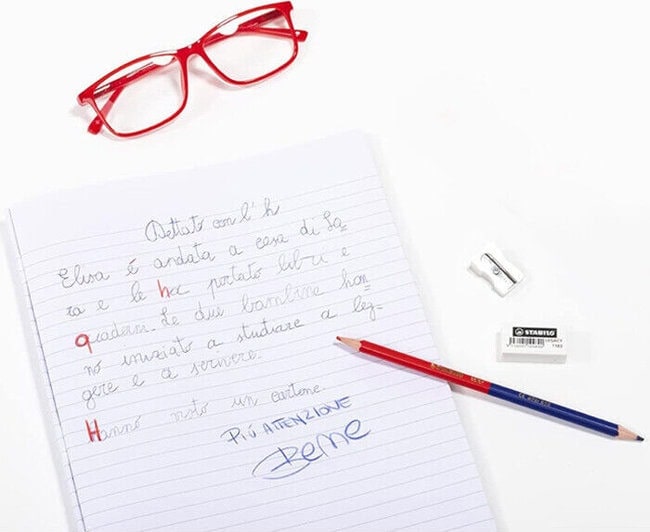 Dettato con l'h
Elisa é andata a casa di Sa=
ra e le ha portato libri e
quaderni. Le due bambine han=
no iniziato a studiare a leg=
gere e a scrivere.
Hanno visto un cartone.
PIÙ ATTENZIONE
Bene
STABILO
LEGACY